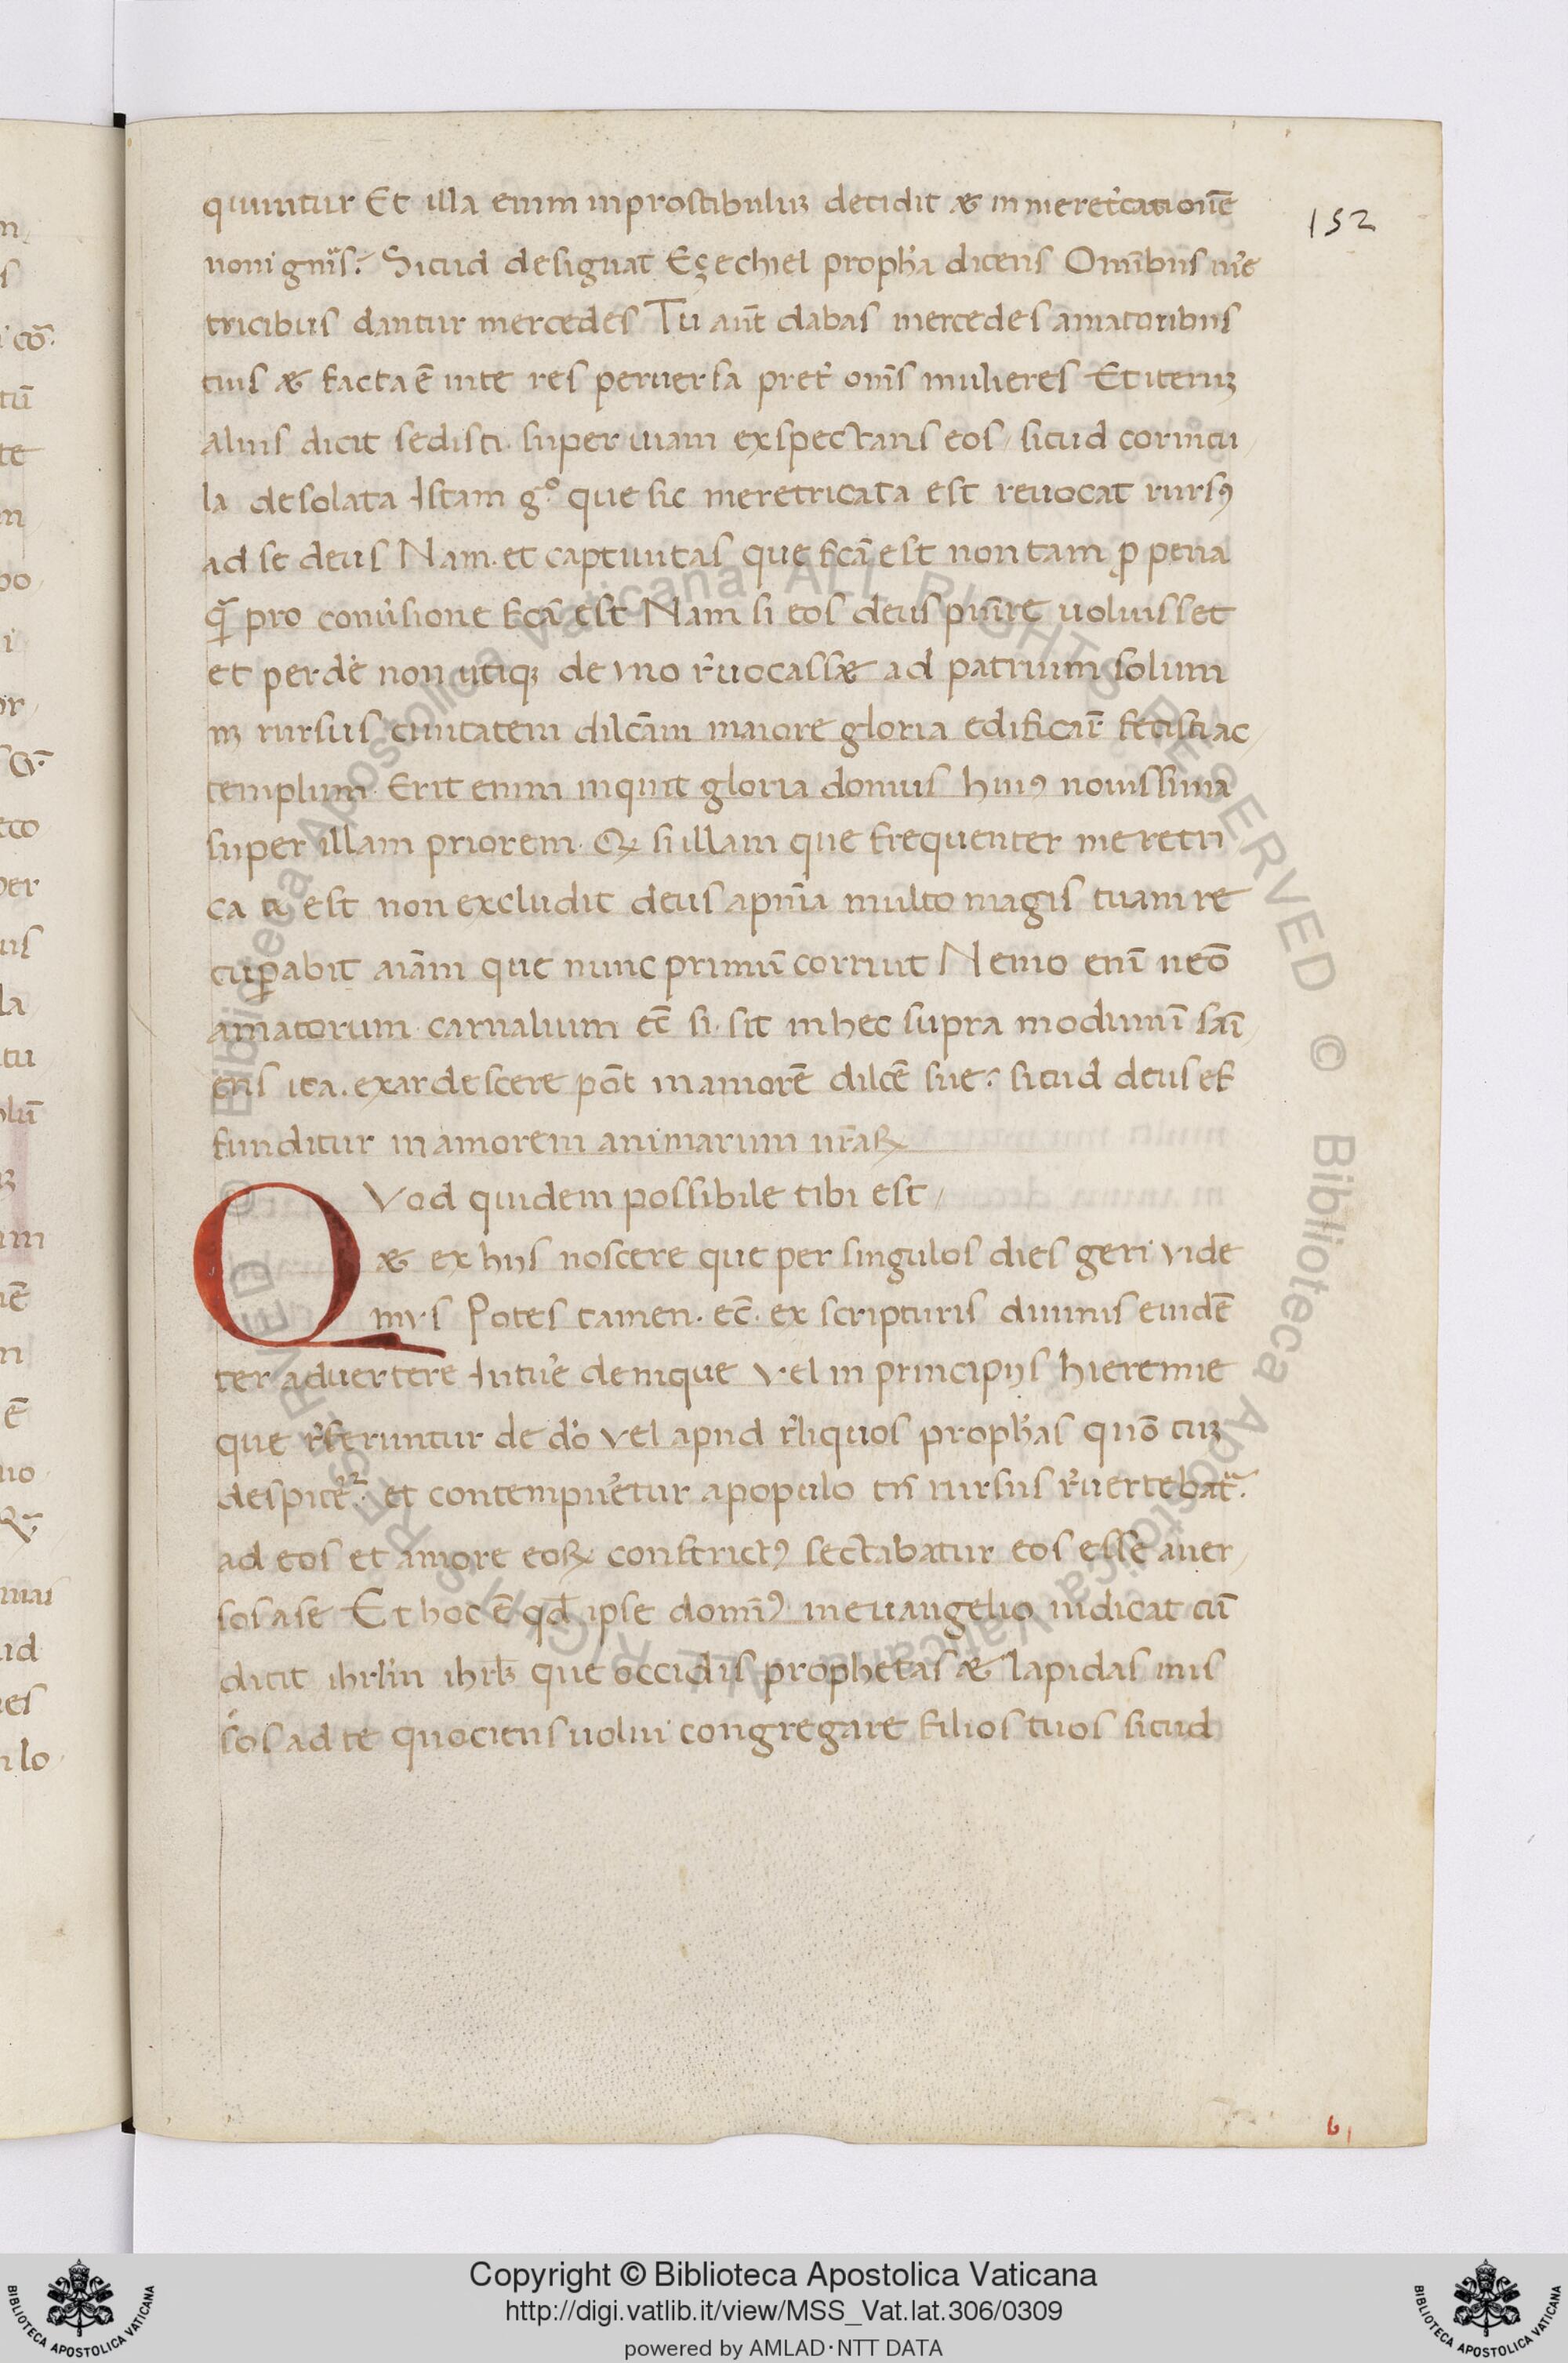 152
quuntur Et illa enim inprostibuluꝫ decidit & in meret͛cationē
noui gn̄is. Sicud designat Ezechiel proph̄a dicens Omībus me͛
tricibus dantur mercedes Tu aut̄ dabas mercedes amatoribus
tuis & facta ē inte res peruersa pret͛ om̄s mulieres Et iteruꝫ
alius dicit sedisti super uiam exspectans eos sicud cornicu
la desolata Istam g° que sic meretricata est reuocat rursꝰ
ad se deus Nam et captiuitas que fcā est non tam ꝓ pena
qᷓ pro conu͛sione fcā est Nam si eos deus puīre uoluisset
et perde͛ non utiqꝫ de vno r͛uocass& ad patrium solum
nꝫ rursus ciuitatem dilcām maiore gloria edificar̄ fecisti ac
templum Erit enim inquit gloria domus huiꝰ nouissima
super illam priorem. Qꝫ si illam que frequenter meretri
ca ta est non excludit deus apnīa multo magis tuam re
cuꝑabit aīam que nunc primū corruit Nemo enī neō
amatorum carnalium ec̄ si sit inhec supra modum īsāī
ens ita exardescere pōt inamorē dilcē sue. sicud deus ef
funditur in amorem animarum nr̄aꝝ
QVod quidem possibile tibi est
& ex hijs noscere que per singulos dies geri vide
mvs Potes tamen ec̄ ex scripturis diuinis euidē
ter aduertere Intue͛ denique vel in principijs hieremie
que r͛feruntur de do͛ vel apud r͛liquos proph̄as quō cuꝫ
despice͛ᷓ et contempne͛tur apopulo tn̄ rursus r͛uertebatᷓ
ad eos et amore eoꝝ constrictꝰ sectabatur eos esse auer
sos ase Et hoc ē qd̄ ipse domīꝰ in euangelio indicat cū
dicit ihrlm̄ ihrl̄m que occidis prophetas & lapidas mis
sos ad te quociens uolui congregare filios tuos sicud
Copyright © Biblioteca Apostolica Vaticana
http://digi.vatlib.it/view/MSS_Vat.lat.306/0309
powered by AMLAD·NTT DATA